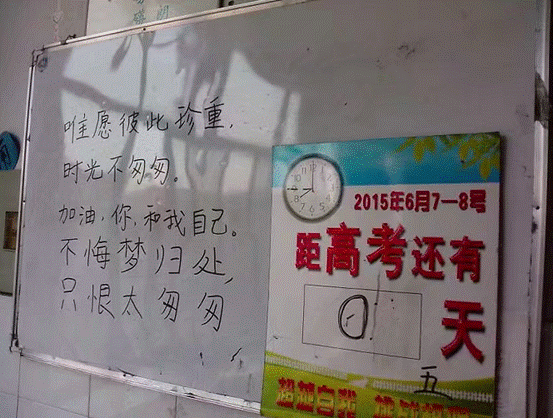 唯愿彼此珍重,
时光不匆匆。
加油,你,和我自己。
不悔梦归处,
只恨太匆匆
2015年6月7—8号
距高考还有
0
天
五
超越自我